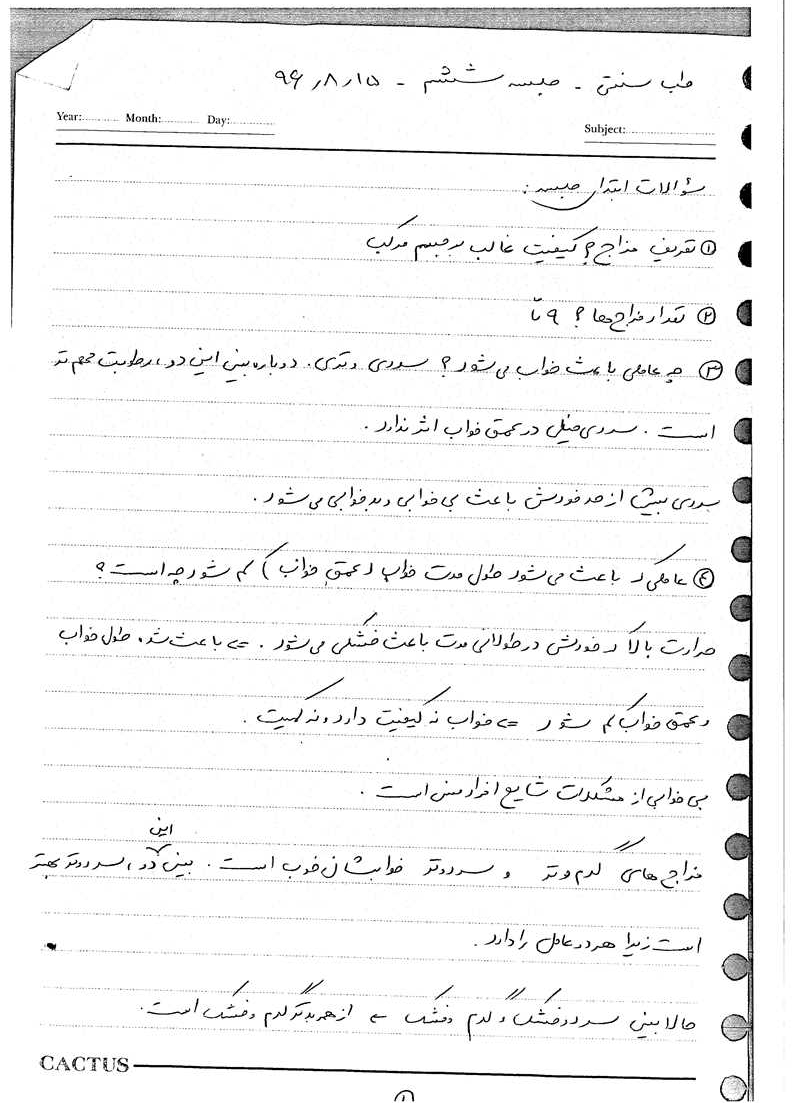 طب سنتی - جلسه ششم - ۹۶/۸/۱۵
Year: Month: Day:
Subject:
سؤالات ابتدای جلسه:
① تعریف مزاج؟ کیفیت غالب بر جسم مرکب
② تعداد مزاج‌ها؟ ۹ تا
③ چه عاملی باعث خواب می‌شود؟ سردی و تری. دوباره بین این دو، رطوبت مهم تر
است. سردی خیلی در عمق خواب اثر ندارد.
سردی بیش از حد خودش باعث بی خوابی و بد خوابی می‌شود.
④ عاملی که باعث می‌شود طول مدت خواب (و عمق خواب) کم شود چه است؟
حرارت بالا که خودش در طولانی مدت باعث خشکی می‌شود. => باعث شده طول خواب
و عمق خواب کم شود => خواب نه کیفیت دارد و نه کمیت.
بی خوابی از مشکلات شایع افراد مسن است.
مزاج های گرم و تر و سرد و تر خوابشان خوب است. بین این دو، سرد و تر بهتر
است زیرا هر دو عامل را دارد.
حالا بین سرد و خشک و گرم و خشک ← از همه بدتر گرم و خشک است.
CACTUS
①